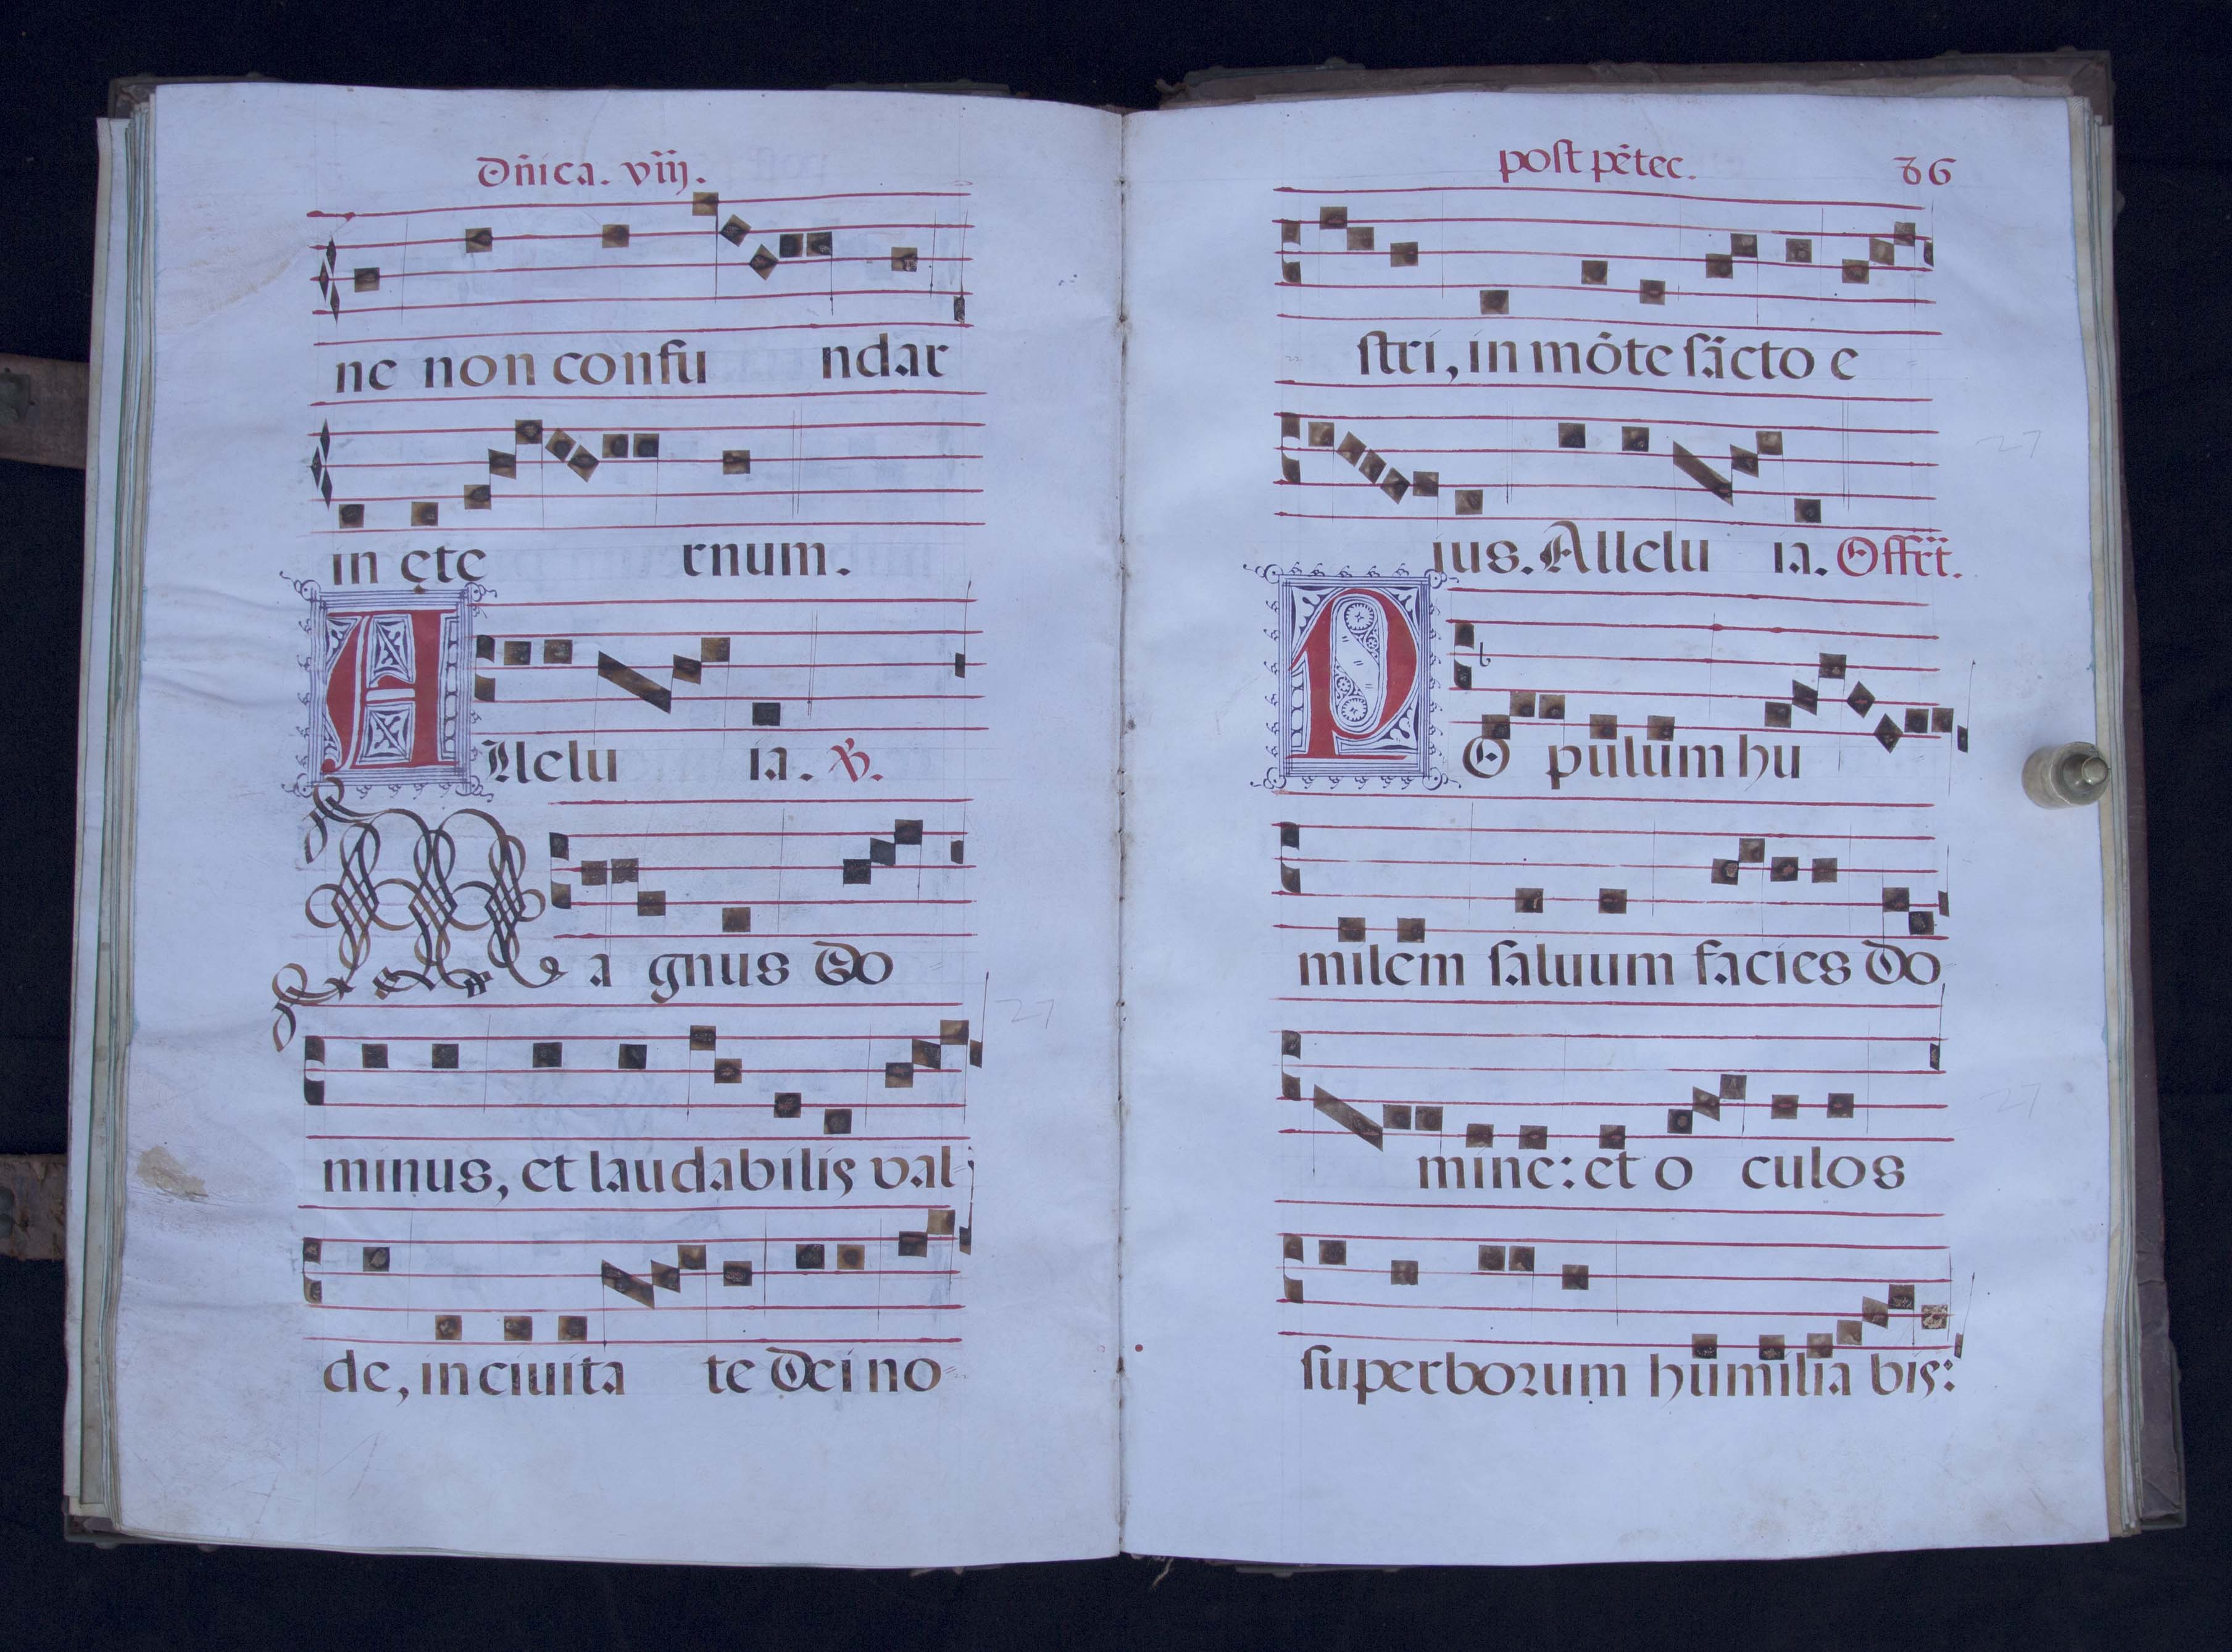 Dn̄ica. viij.
ne non confu ndar
in ęte rnum.
A llelu ia. ℣.
M a gnus Do
minus, et laudabilis val
de, in ciuita te Dei no
post pētec. 86
stri, in mōte sācto e
ius. Allelu ia. Offrt̄.
P O pulum hu
milem saluum facies Do
mine: et o culos
superborum humilia bis:
27
27
27